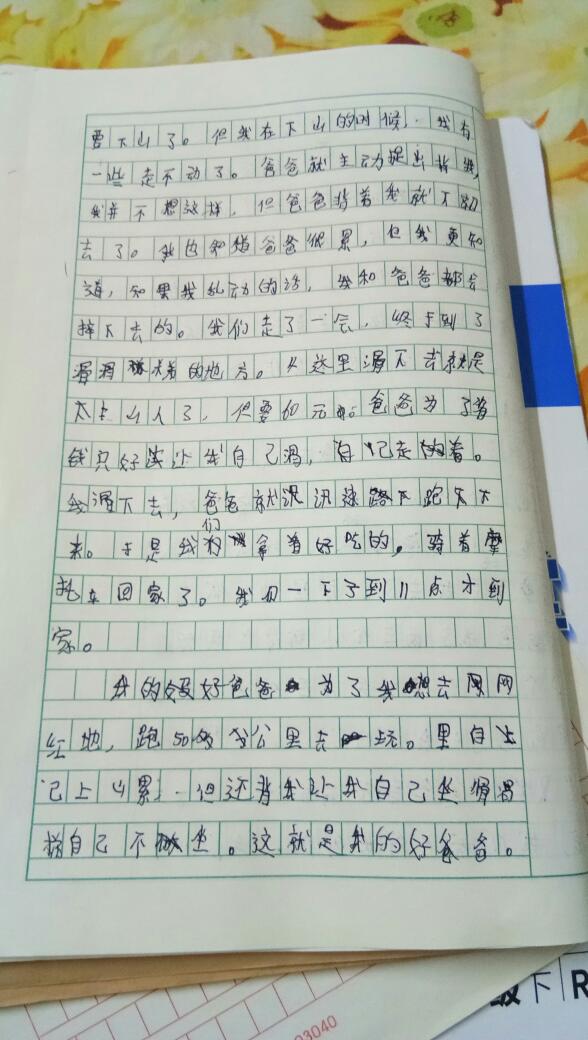 要下山了。但我在下山的时候,我有
一些走不动了。爸爸就主动提出背我,
我并不想这样,但爸爸背着我就下
去了。我也知道爸爸很累,但我更知
道,如果我乱动的话,我和爸爸都会
摔下去的。我们走了一会,终于到了
滑滑梯的地方。从这里滑下去就是
了,但要60元,爸爸为了省
钱只好让我自己滑,自己走着。
我滑下去,爸爸就迅速跑下
来。于是我们拿着好吃的,骑着摩
托车回家了。我们一下子到11点才到
家。
我的好爸爸为了我想去网
红地,跑50多公里去玩。自
己上山累,但还背我让我自己坐滑滑
梯自己不坐。这就是我的好爸爸。
级下R
03040